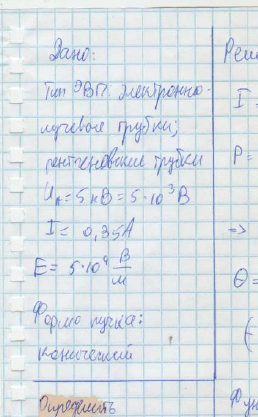 Дано:
Тип ЭВП: электронно-
лучевые трубки;
рентгеновские трубки
Uₐ = 5 кВ = 5·10³ В
I = 0,35 А
E = 5·10⁴ В/м
Форма пучка:
конический
Определить
Реше
I =
P =
=>
Θ =
(
Фун